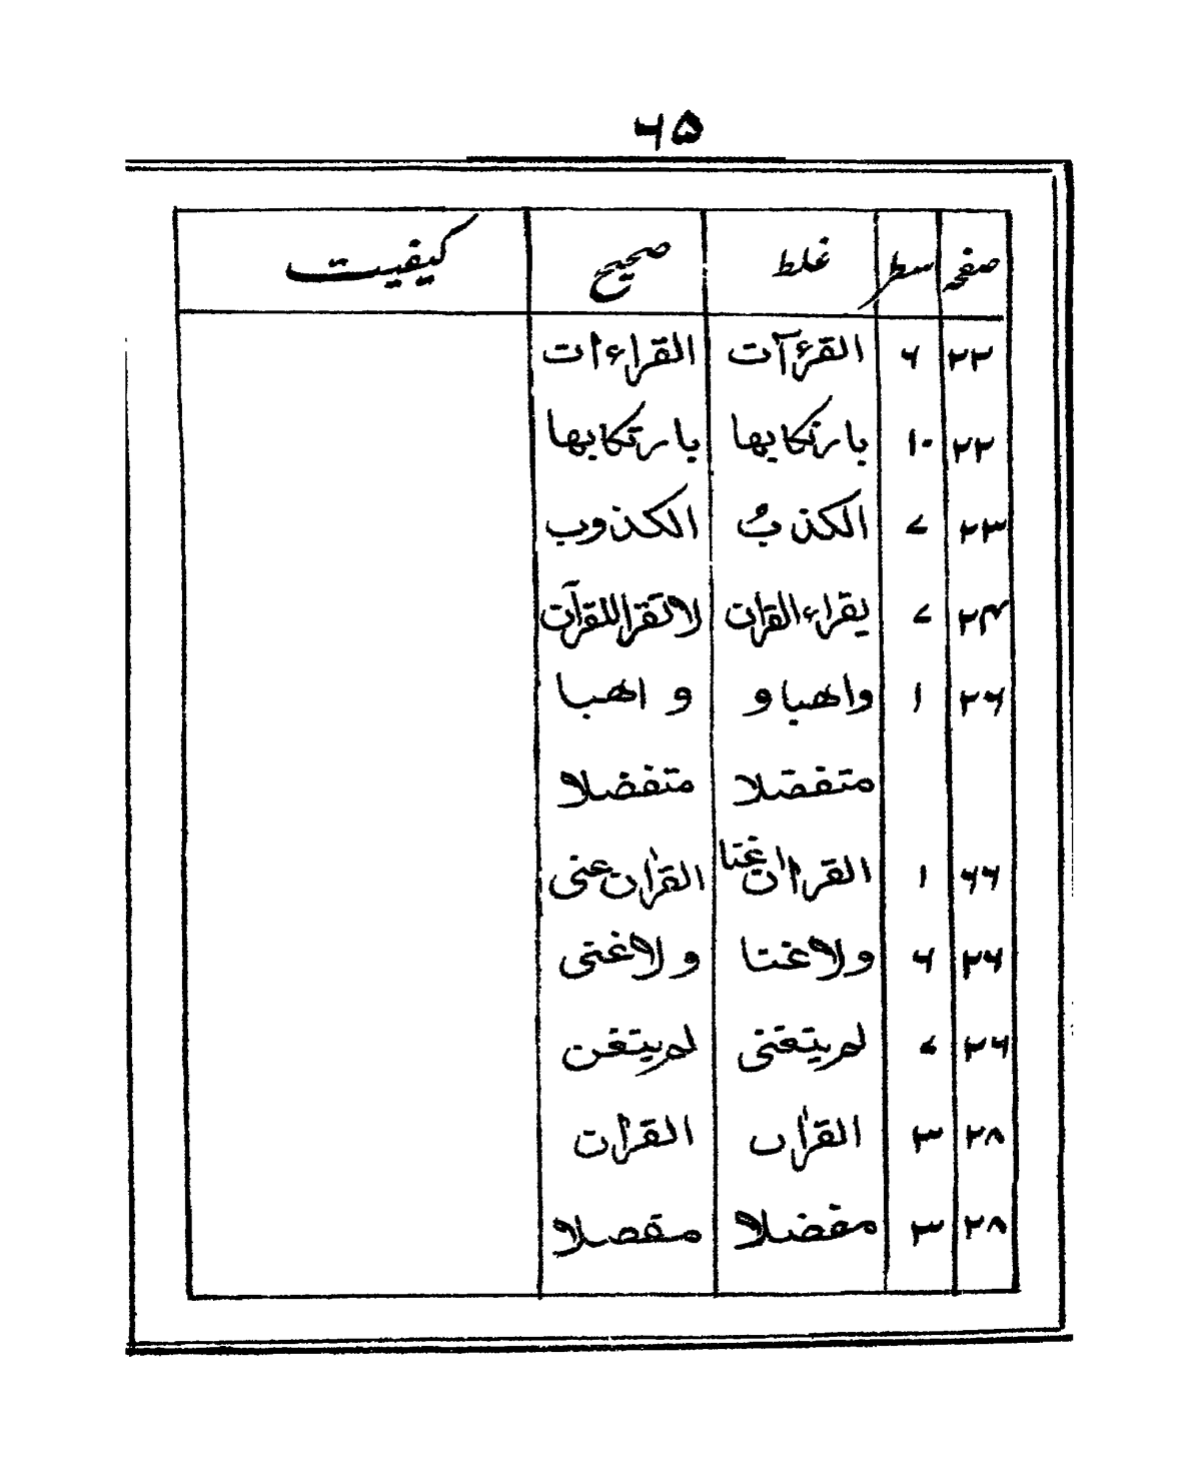 ۶۵
صفحہ سطر غلط صحیح کیفیت
۲۲ ۶ القرءآت القراءات
۲۲ ۱۰ بارتکابها بارتکابها
۲۳ ۷ الکذبُ الکذوب
۲۴ ۷ یقراء القران لا تقرا للقرآن
۲۶ ۱ واهبا و و اهبا
متفقلا متفضلا
۶۶ ۱ القراان غنا القران عنی
۲۶ ۶ ولا غنا ولا غنی
۲۶ ۷ لم یتغنی لم یتغن
۲۸ ۳ القراں القران
۲۸ ۳ مفضلا مفصلا